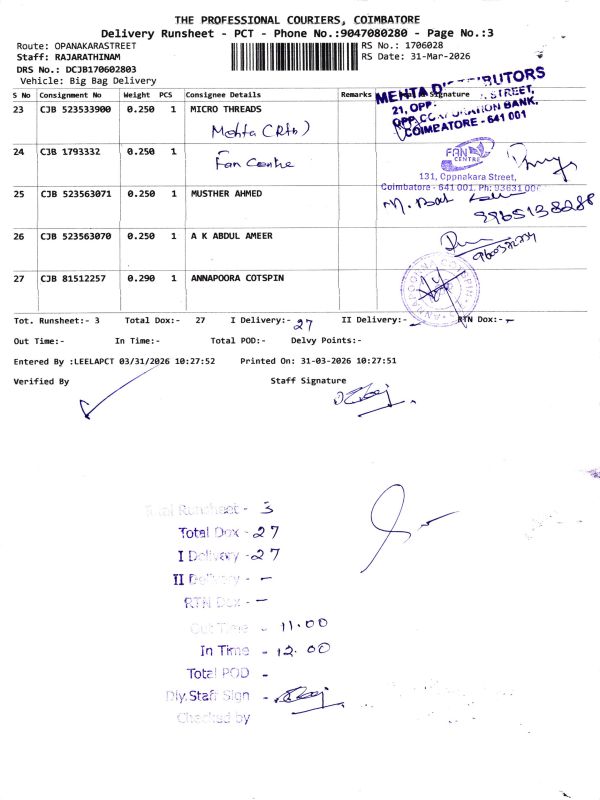 THE PROFESSIONAL COURIERS, COIMBATORE
Delivery Runsheet - PCT - Phone No.:9047080280 - Page No.:3
Route: OPANAKARASTREET
RS No.: 1706028
Staff: RAJARATHINAM
RS Date: 31-Mar-2026
DRS No.: DCJB170602803
Vehicle: Big Bag Delivery
S No Consignment No Weight PCS Consignee Details Remarks Signature
MEHTA DISTRIBUTORS
21, OPP. STREET,
OPP. CORPORATION BANK,
COIMBATORE - 641 001
23 CJB 523533900 0.250 1 MICRO THREADS
Mehta (Rtn)
24 CJB 1793332 0.250 1
Fan Centre
FAN CENTRE
131, Oppnakara Street,
Coimbatore - 641 001. Ph: 93631
25 CJB 523563071 0.250 1 MUSTHER AHMED
9965138288
26 CJB 523563070 0.250 1 A K ABDUL AMEER
27 CJB 81512257 0.290 1 ANNAPOORA COTSPIN
Tot. Runsheet:- 3 Total Dox:- 27 I Delivery:- 27 II Delivery:- - RTN Dox:- -
Out Time:- In Time:- Total POD:- Delvy Points:-
Entered By :LEELAPCT 03/31/2026 10:27:52 Printed On: 31-03-2026 10:27:51
Verified By Staff Signature
Total Runsheet - 3
Total Dox - 27
I Delivery - 27
II Delivery - -
RTN Dox - -
Out Time - 11.00
In Time - 12.00
Total POD -
Dly.Staff Sign -
Checked by